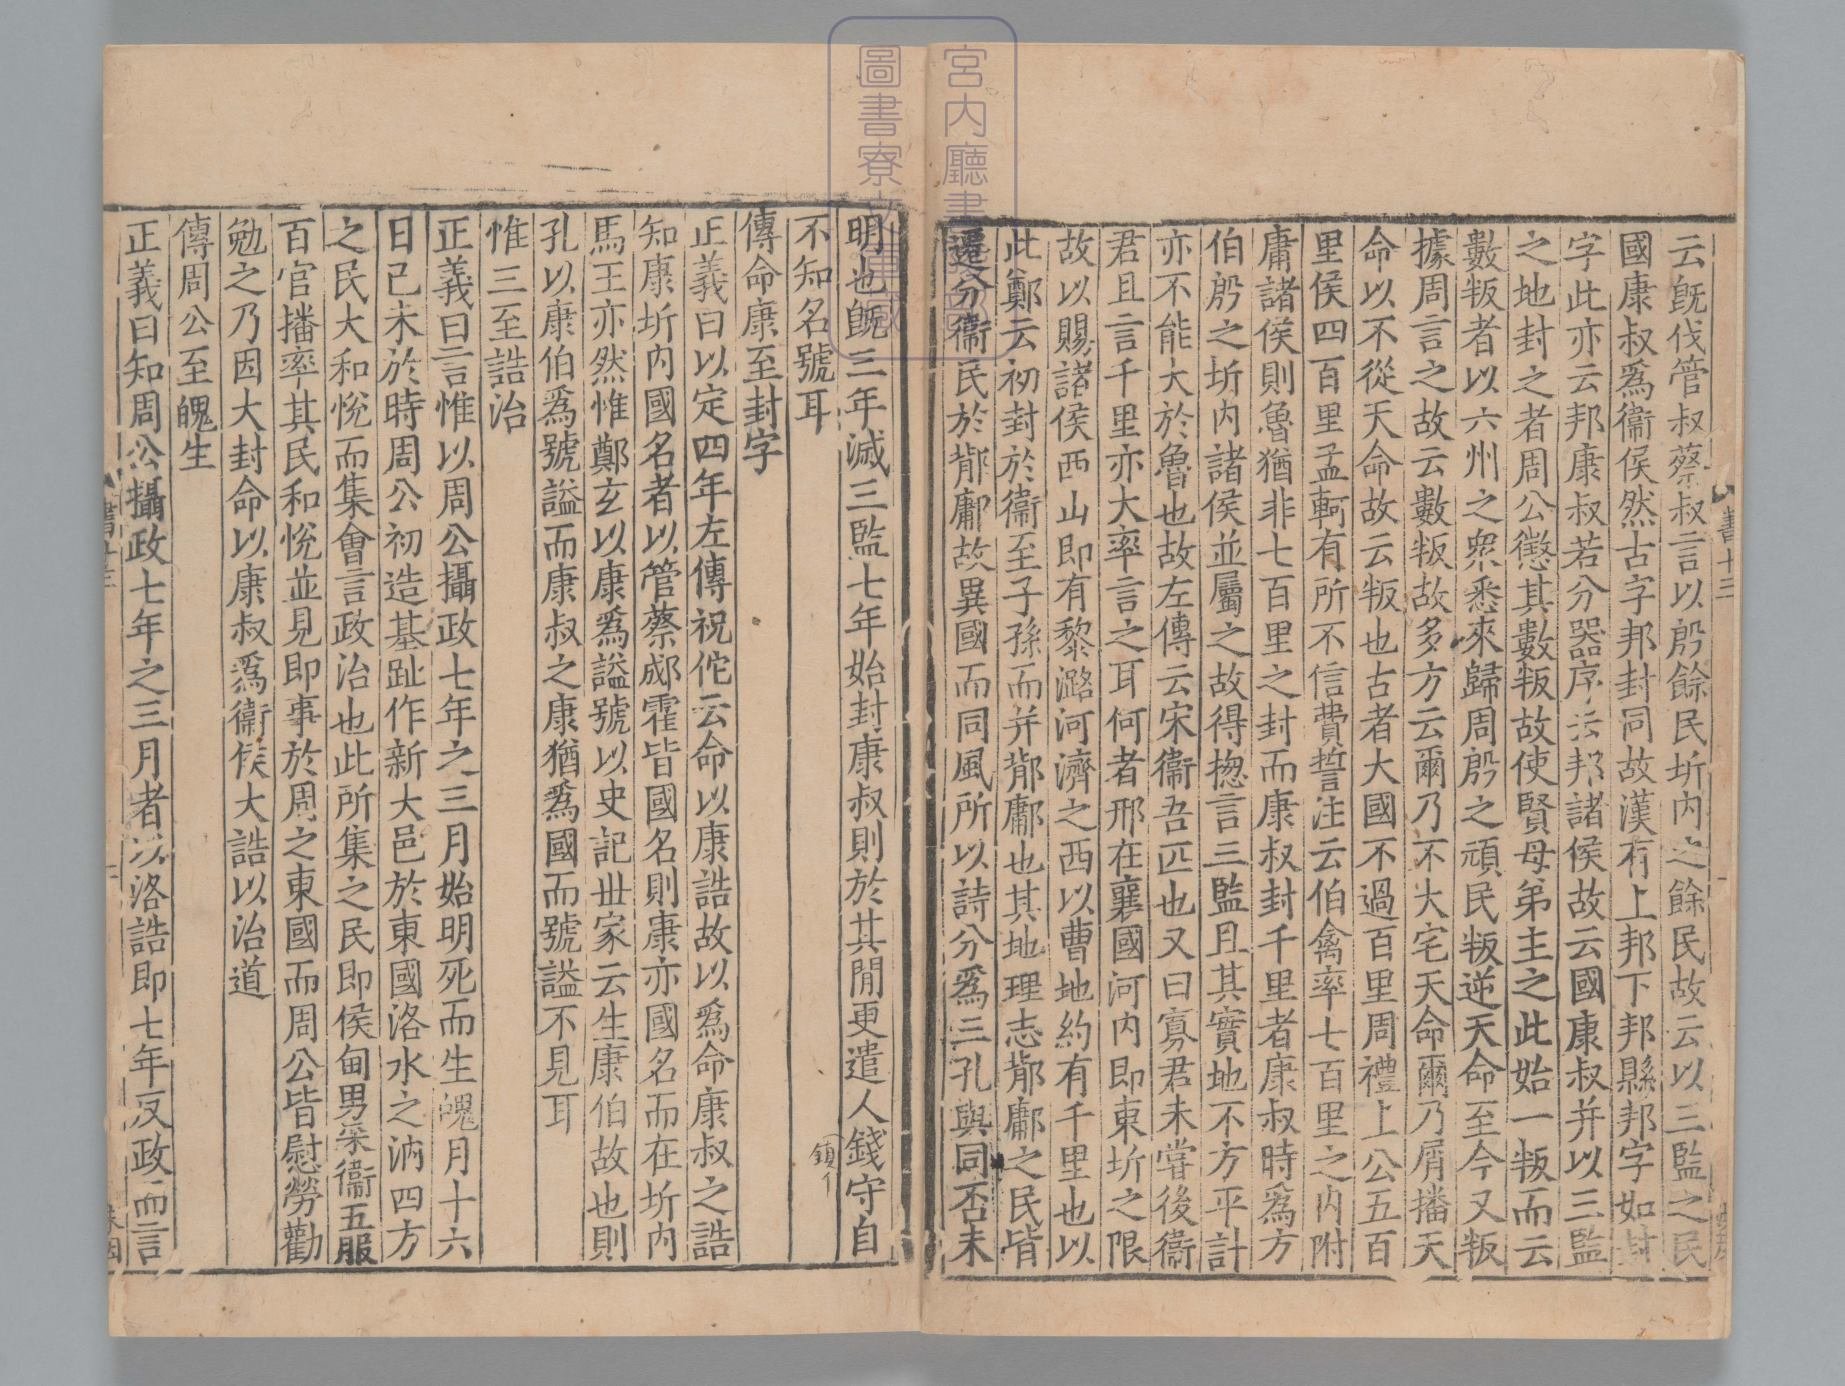 云旣伐管叔蔡叔言以殷餘民圻内之餘民故云以三監之民
國康叔爲衞侯然古字邦封同故漢有上邦下邦縣邦字如封
字此亦云邦康叔若分器序云邦諸侯故云國康叔并以三監
之地封之者周公懲其數叛故使賢母弟主之此始一叛而云
數叛者以六州之衆悉來歸周殷之頑民叛逆天命至今又叛
據周言之故云數叛故多方云爾乃不大宅天命爾乃屑播天
命以不從天命故云叛也古者大國不過百里周禮上公五百
里侯四百里孟軻有所不信費誓注云伯禽率七百里之内附
庸諸侯則魯猶非七百里之封而康叔封千里者康叔時爲方
伯殷之圻内諸侯並屬之故得揔言三監且其實地不方平計
亦不能大於魯也故左傳云宋衞吾匹也又曰寡君未嘗後衞
君且言千里亦大率言之耳何者邢在襄國河内即東圻之限
故以賜諸侯西山即有黎潞河濟之西以曹地約有千里也以
此鄭云初封於衞至子孫而并鄁鄘也其地理志鄁鄘之民皆
遷分衞民於鄁鄘故異國而同風所以詩分爲三孔與同否未
明也旣三年滅三監七年始封康叔則於其閒更遣人鎮守自
不知名號耳
傳命康至封字
正義曰以定四年左傳祝佗云命以康誥故以爲命康叔之誥
知康圻内國名者以管蔡郕霍皆國名則康亦國名而在圻内
馬王亦然惟鄭玄以康爲謚號以史記世家云生康伯故也則
孔以康伯爲號謚而康叔之康猶爲國而號謚不見耳
惟三至誥治
正義曰言惟以周公攝政七年之三月始明死而生魄月十六
日己未於時周公初造基趾作新大邑於東國洛水之汭四方
之民大和悅而集會言政治也此所集之民即侯甸男采衞五服
百官播率其民和悅並見即事於周之東國而周公皆慰勞勸
勉之乃因大封命以康叔爲衞侯大誥以治道
傳周公至魄生
正義曰知周公攝政七年之三月者以洛誥即七年反政而言
書十三
宮内廳書陵部
圖書寮文庫藏